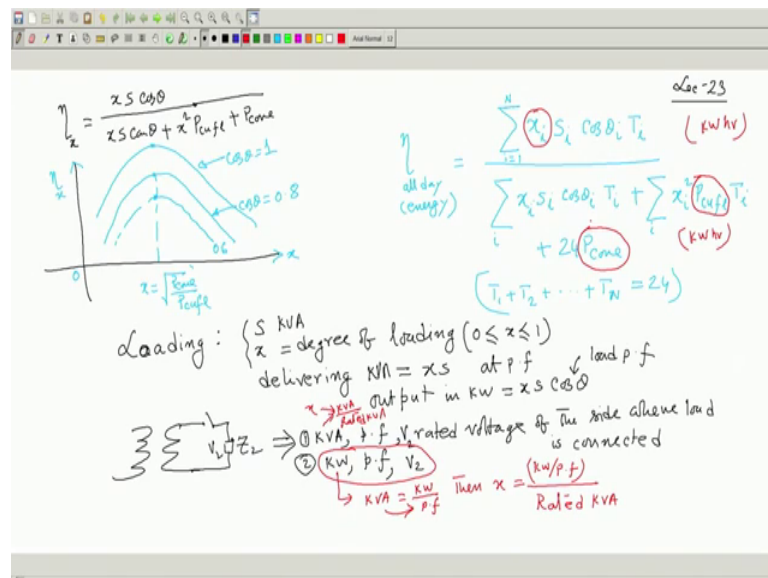 Lec-23
η_x = x S cosθ / (x S cosθ + x² P_cufl + P_core)
η_x
cosθ=1
cosθ=0.8
0.6
0
x
x = √(P_core / P_cufl)
η all day (energy) = Σ_{i=1}^{N} x_i S_i cosθ_i T_i (KW hr)
Σ_i x_i S_i cosθ_i T_i + Σ_i x_i² P_cufl T_i
+ 24 P_core (KW hr)
(T_1 + T_2 + ··· + T_N = 24)
Loading : { S KVA
x = degree of loading (0 ≤ x ≤ 1)
delivering KVA = xS at p.f load p.f
output in KW = x S cosθ
x → KVA / Rated KVA
V_2 Z_2 ⇒ ① KVA, p.f, V_2 rated voltage of the side where load
is connected
② KW, p.f, V_2
↳ KVA = KW / p.f Then x = (KW/p.f) / Rated KVA
Arial Normal 12